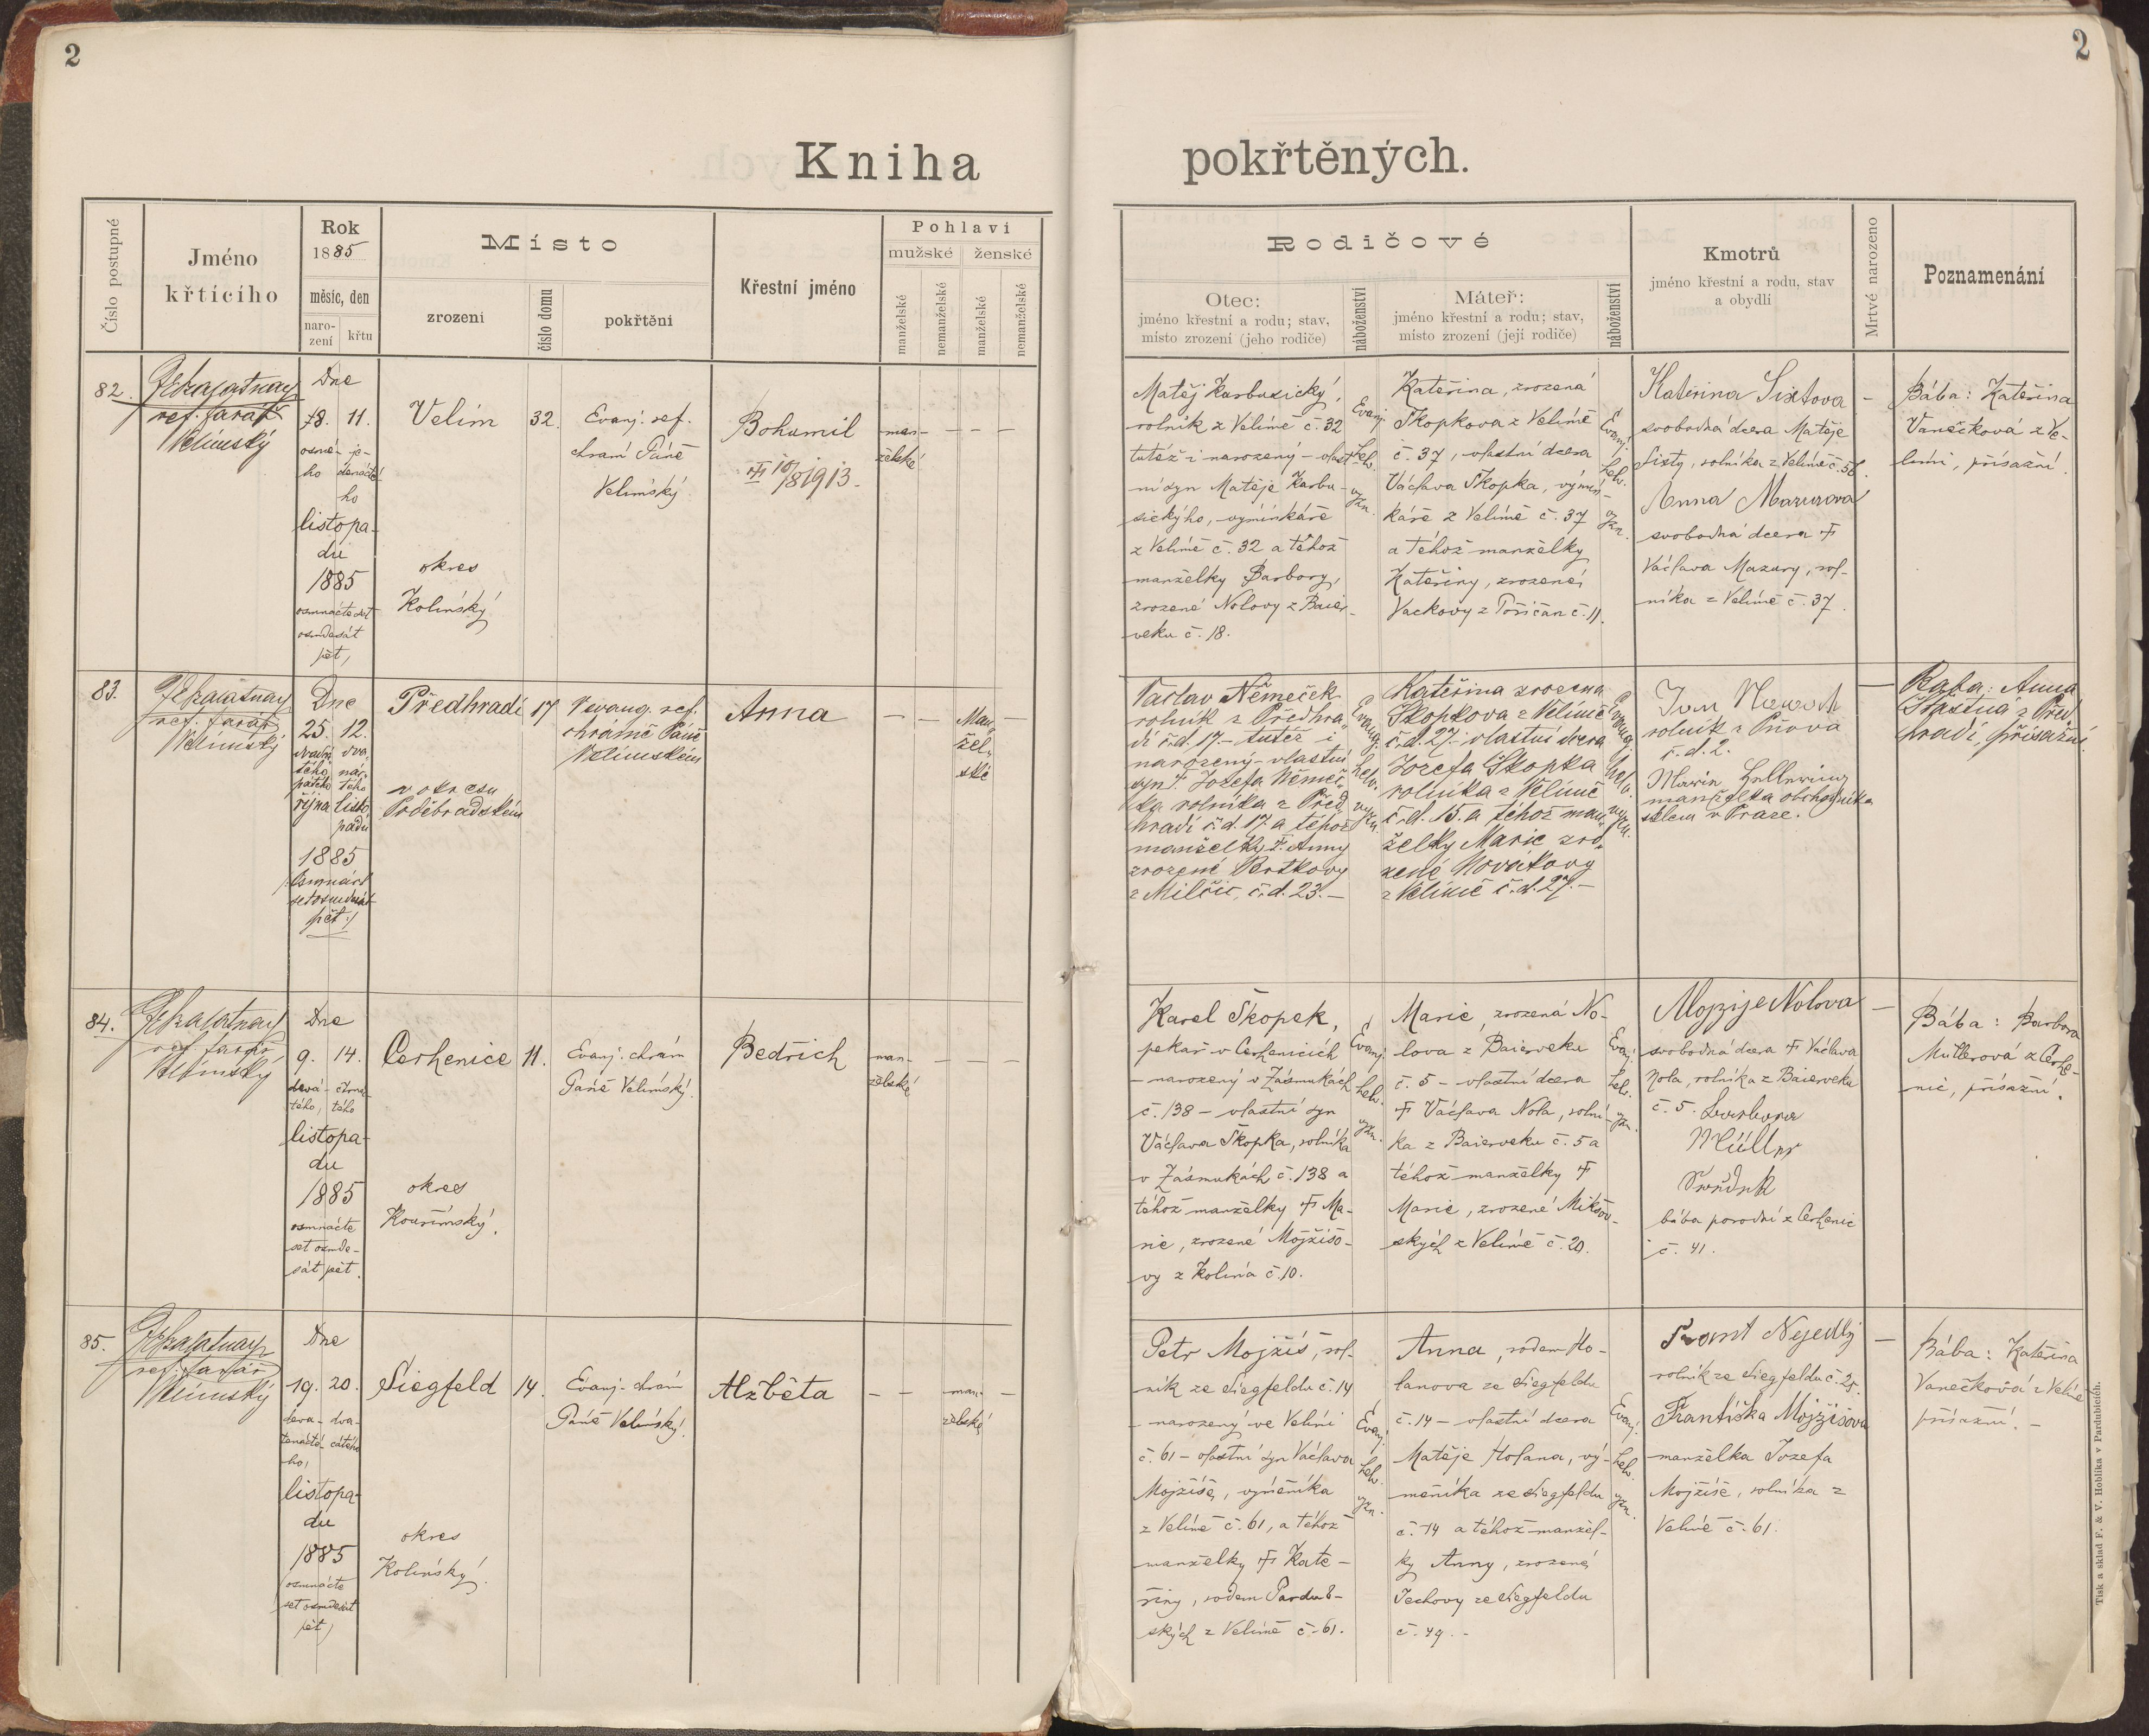 2
2
Kniha pokřtěných.
Číslo postupné
Jméno
křtícího
Rok
1885
měsíc, den
naro-
zení
křtu
Místo
zrození
číslo domu
pokřtění
Křestní jméno
Pohlaví
mužské
ženské
manželské
nemanželské
manželské
nemanželské
Rodičové
Otec:
jméno křestní a rodu; stav,
místo zrození (jeho rodiče)
náboženství
Máteř:
jméno křestní a rodu; stav,
místo zrození (její rodiče)
náboženství
Kmotrů
jméno křestní a rodu, stav
a obydlí
Mrtvé narozeno
Poznamenání
82.
ref. farář
Velimský
Dne
8. 11.
osmé- je-
ho denácté-
ho
listopa-
du
1885
osmnáctset
osmdesát
pět,
Velim
okres
Kolínský
32.
Evanj. ref.
chrám Páně
Velimský
Bohumil
10/8 1913.
man-
želské
Matěj Karbusický,
rolník z Velimě č. 32
tutéž i narozený – vlast-
ní syn Matěje Karbu-
sického, výminkáře
z Velimě č. 32 a téhož
manželky Barbory,
zrozené Nolovy z Baier-
veku č. 18.
Evanj.
helv.
vyzn.
Kateřina, zrozená
Škopkova z Velimě
č. 37, vlastní dcera
Václava Škopka, výmin-
káře z Velimě č. 37
a téhož manželky
Kateřiny, zrozené
Vackovy z Poříčan č. 11.
Evanj.
helv.
vyzn.
Kateřina Sixtova
svobodná dcera Matěje
Sixty, rolníka z Velimě č. 56.
Anna Mazurova
svobodná dcera †
Václava Mazury, rol-
níka z Velimě č. 37.
–
Bába: Kateřina
Vaněčková z Ve-
limi, přísažní.
83.
ref. farář
Velimský
Dne
25. 12.
dvacá- dva-
tého nác-
pátého tého
října listo-
padu
1885
/:osmnáct
set osmdesát
pět:/
Předhradí
v okresu
Poděbradském
17
V evang. ref.
chrámě Páně
Velimském
Anna
Man-
žel-
ské
Václav Němeček
rolník z Předhra-
dí č.d. 17. – tutéž i
narozený – vlastní
syn † Jozefa Němeč-
ka rolníka z Před-
hradí č.d. 17. a téhož
manželky † Anny
zrozené Vertkovy
z Milčic, č.d. 23. –
Evang.
helv.
vyzn.
Kateřina zrozena
Škopkova z Velimě
č.d. 27. – vlastní dcera
Jozefa Škopka
rolníka z Velimě
č.d. 15. a téhož man-
želky Marie zro-
zené Novákovy
z Velimě č.d. 27. –
Evang.
helv.
vyzn.
Jan
rolník z Pňova
č.d. 2.
Marie
manželka obchodníka
v Praze.
–
Baba: Anna
Šťastná z Před-
hradí, přísažní.
84.
ref. farář
Velimský
Dne
9. 14.
devá- čtrnác-
tého, tého
listopa-
du
1885
osmnácte
set osmde-
sát pět.
Cerhenice
okres
Kouřimský.
11.
Evanj. chrám
Páně Velimský.
Bedřich
man-
želské
Karel Škopek,
pekař v Cerhenicích
– narozený v Zásmukách
č. 138 – vlastní syn
Václava Škopka, rolníka
v Zásmukách č. 138 a
téhož manželky † Ma-
rie, zrozené Mojžíšo-
vy z Kolína č. 10.
Evanj.
helv.
vyzn.
Marie, zrozená No-
lova z Baierveku
č. 5 – vlastní dcera
† Václava Nola, rolní-
ka z Baierveku č. 5 a
téhož manželky †
Marie, zrozené Mikšov-
ských z Velimě č. 20.
Evanj.
helv.
vyzn.
Alojzije Nolova
svobodná dcera † Václava
Nola, rolníka z Baierveku
č. 5. Barbora
Müller
bába porodní z Cerhenic
č. 41.
–
Bába: Barbora
Müllerová z Cerhe-
nic, přísažní.
85.
ref. farář
Velimský
Dne
19. 20.
deva- dva-
tenácté- cátého
ho,
listopa-
du
1885
(osmnácte
set osmdesát
pět)
Siegfeld
okres
Kolínský.
14.
Evanj. chrám
Páně Velimský.
Alžběta
man-
želské
Petr Mojžíš, rol-
ník ze Siegfeldu č. 14
– narozený ve Velimi
č. 61 – vlastní syn Václava
Mojžíše, výměníka
z Velimě č. 61, a téhož
manželky † Kate-
řiny, rodem Pardub-
ských z Velimě č. 61.
Evanj.
helv.
vyzn.
Anna, rodem Ho-
lanova ze Siegfeldu
č. 14 – vlastní dcera
Matěje Holana, vý-
měníka ze Siegfeldu
č. 14 a téhož manžel-
ky Anny, zrozené
Jechovy ze Siegfeldu
č. 49. –
Evanj.
helv.
vyzn.
Frant Nejedlý
rolník ze Siegfeldu č. 25.
Františka Mojžišova
manželka Jozefa
Mojžíše, rolníka z
Velimě č. 61.
–
Bába: Kateřina
Vanečková z Velimě
přísažní. –
Tisk a sklad F. & V. Hoblíka v Pardubicích.